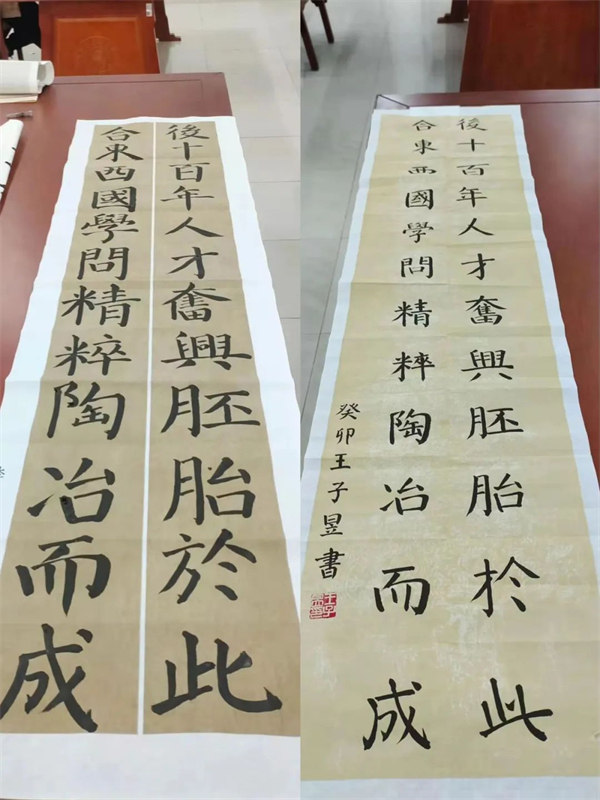 後十百年人才奮興胚胎於此
合東西國學問精粹陶冶而成
後十百年人才奮興胚胎扵此
合東西國學問精粹陶冶而成
癸卯王子昱書